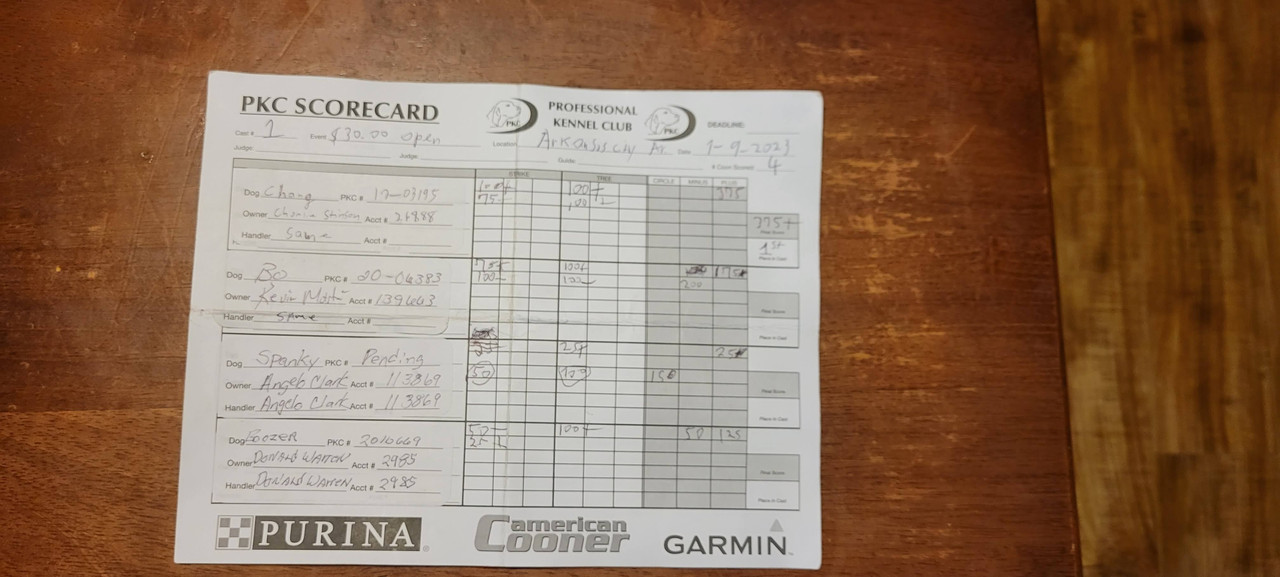 PKC SCORECARD
PROFESSIONAL KENNEL CLUB
PKC
PKC
DEADLINE:
Cast # 1 Event $30.00 open Location Arkansas City Ar Date 1-9-2023
Judge: Judge: Guide: # Coon Scored: 4
STRIKE TREE CIRCLE MINUS PLUS
Dog PKC # 17-03195 100+ 100+ 375
75 100
Owner Acct # 375+
Final Score
Handler Same Acct # 1st
Place in Cast
Dog Bo PKC # 20-04383 75+ 100+ 175
100- 100- 200
Owner Kevin Acct # 139443
Final Score
Handler same Acct #
Place in Cast
Dog Spanky PKC # Pending 25+ 25
Owner Angelo Clark Acct # 113869 50 100 150
Final Score
Handler Angelo Clark Acct # 113869
Place in Cast
50 100 50 125
Dog PKC # 2016669 25
Owner DONALD Acct # 2985
Final Score
Handler DONALD Acct # 2985
Place in Cast
PURINA
american Cooner
GARMIN